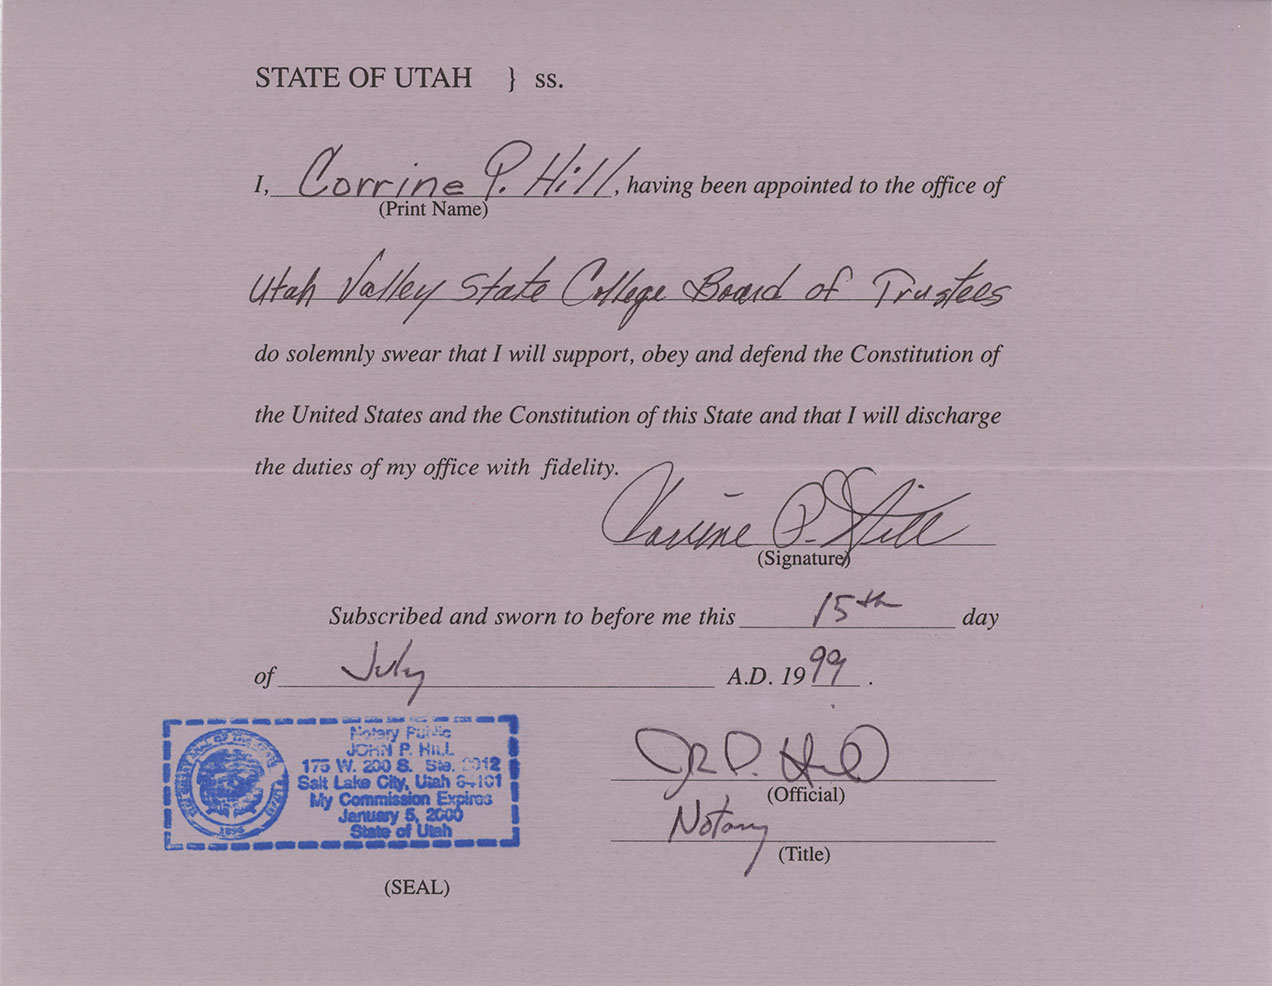 STATE OF UTAH } ss.
I, Corrine P. Hill, having been appointed to the office of
(Print Name)
Utah Valley State College Board of Trustees
do solemnly swear that I will support, obey and defend the Constitution of
the United States and the Constitution of this State and that I will discharge
the duties of my office with fidelity.
Corrine P. Hill
(Signature)
Subscribed and sworn to before me this 15th day
of July A.D. 1999.
Notary Public
JOHN P. HILL
175 W. 200 S. Ste.
Salt Lake City, Utah 84101
My Commission Expires
January 5, 2000
State of Utah
1896
(SEAL)
P. Hill
(Official)
Notary
(Title)